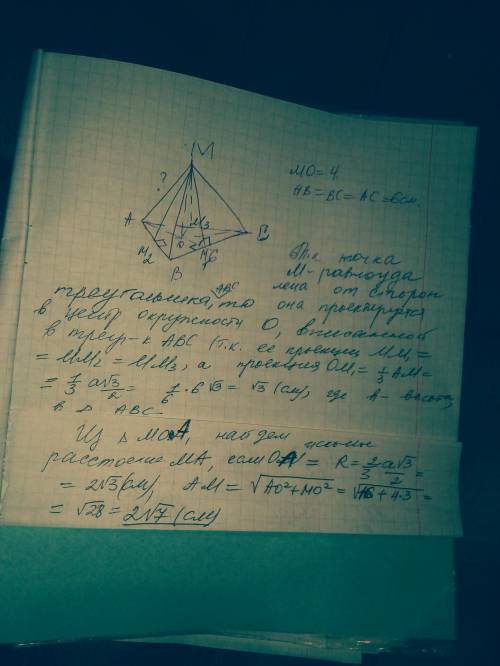 M
?
MO=4
AB=BC=AC=6см.
A
M₃
O
M₂
M₁
6
B
Т.к. точка
M - равноуда
лена от сторон
треугольника ABC, то она проектируется
в центр окружности O, вписанной
в треу-к ABC (т.к. её проекции MM₁=
=MM₂=MM₃, а проекция OM₁=⅓AM=
=1/3 a√3/2 = 1/6·6√3=√3 (см), где
в △ ABC.
Из △ MOA, найдём
расстояние MA, если OA = R = 2/3 a√3/2 =
= 2√3(см), AM = √AO²+MO² = √16+4·3 =
= √28 = 2√7 (см)